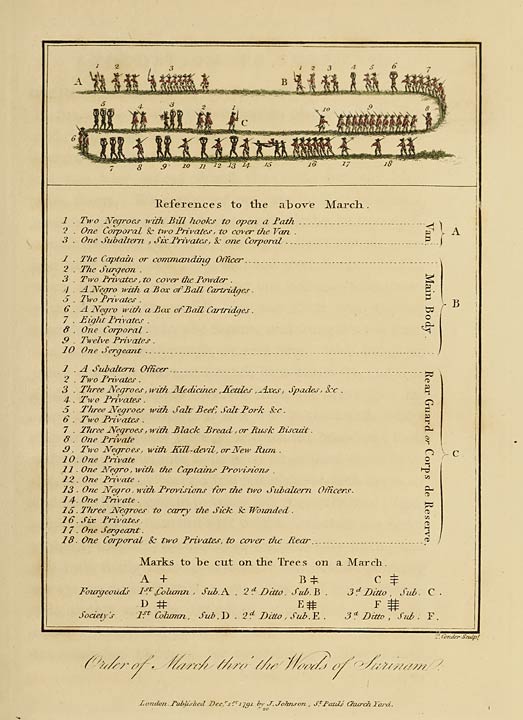 1 2 3 1 2 3 4 5 6 7
A B
5 4 3 2 1 C 10 9 8
6
7 8 9 10 11 12 13 14 15 16 17 18
References to the above March.
1 . Two Negroes with Bill hooks to open a Path
2 . One Corporal & two Privates, to cover the Van .
3 . One Subaltern , Six Privates, & one Corporal
Van A
1 . The Captain or commanding Officer
2 . The Surgeon .
3 . Two Privates, to cover the Powder .
4 . A Negro with a Box of Ball Cartridges.
5 . Two Privates .
6 . A Negro with a Box of Ball Cartridges.
7 . Eight Privates .
8 . One Corporal .
9 . Twelve Privates .
10 One Sergeant
Main Body. B
1 . A Subaltern Officer
2 . Two Privates .
3 . Three Negroes, with Medicines, Kettles, Axes, Spades, &c .
4 . Two Privates .
5 . Three Negroes with Salt Beef, Salt Pork &c .
6 . Two Privates .
7 . Three Negroes, with Black Bread, or Rusk Biscuit .
8 . One Private
9 . Two Negroes, with Kill-devil, or New Rum .
10 . One Private
11 . One Negro, with the Captains Provisions .
12 . One Private .
13 . One Negro, with Provisions for the two Subaltern Officers.
14 . One Private .
15 . Three Negroes to carry the Sick & Wounded .
16 . Six Privates
17 . One Sergeant
18 . One Corporal & two Privates, to cover the Rear
Rear Guard or Corps de Reserve. C
Marks to be cut on the Trees on a March.
A B C
Fourgeoud's 1st Column, Sub. A . 2d Ditto, Sub. B . 3d Ditto, Sub. C .
D E F
Society's 1st Column, Sub. D . 2d Ditto, Sub. E . 3d Ditto, Sub. F .
Conder Sculpt
Order of March thro' the Woods of Surinam.
London. Published Decr 1st 1791 by J. Johnson, St Pauls Church Yard.
20